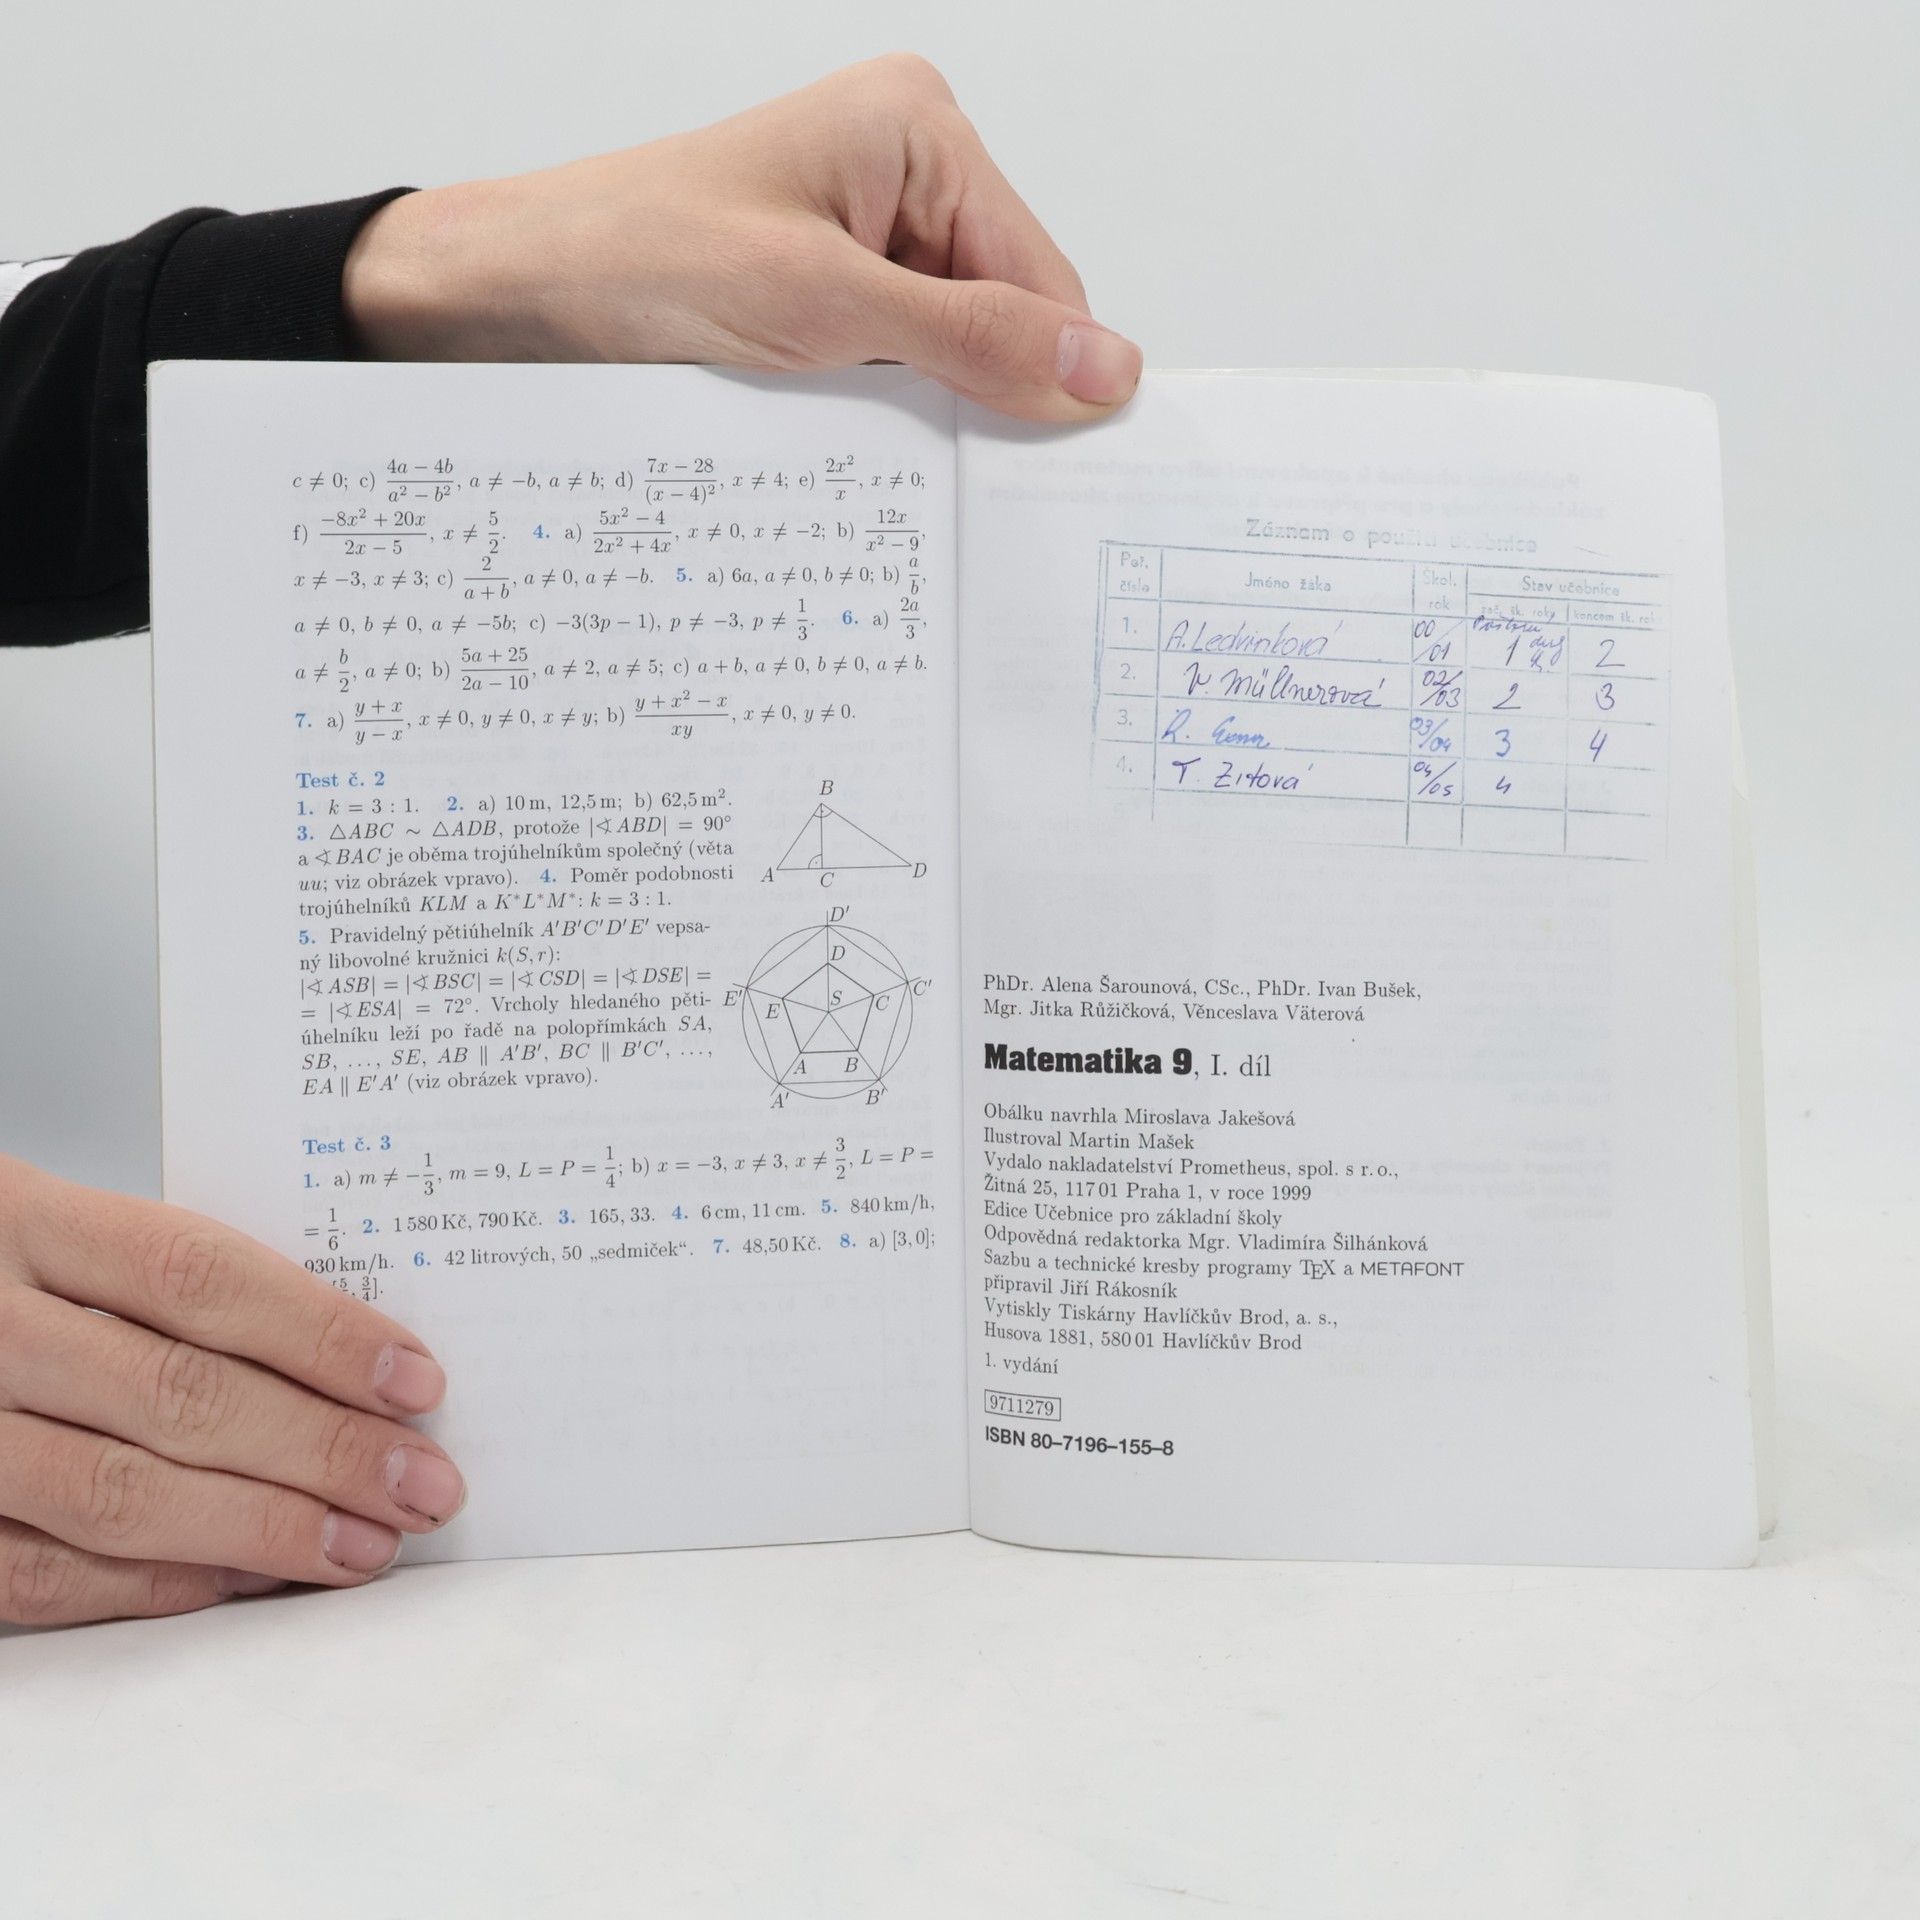 c ≠ 0; c) (4a − 4b)/(a² − b²), a ≠ −b, a ≠ b; d) (7x − 28)/(x − 4)², x ≠ 4; e) 2x²/x, x ≠ 0;
f) (−8x² + 20x)/(2x − 5), x ≠ 5/2. 4. a) (5x² − 4)/(2x² + 4x), x ≠ 0, x ≠ −2; b) 12x/(x² − 9),
x ≠ −3, x ≠ 3; c) 2/(a + b), a ≠ 0, a ≠ −b. 5. a) 6a, a ≠ 0, b ≠ 0; b) a/b,
a ≠ 0, b ≠ 0, a ≠ −5b; c) −3(3p − 1), p ≠ −3, p ≠ 1/3. 6. a) 2a/3,
a ≠ b/2, a ≠ 0; b) (5a + 25)/(2a − 10), a ≠ 2, a ≠ 5; c) a + b, a ≠ 0, b ≠ 0, a ≠ b.
7. a) (y + x)/(y − x), x ≠ 0, y ≠ 0, x ≠ y; b) (y + x² − x)/xy, x ≠ 0, y ≠ 0.
Test č. 2
1. k = 3 : 1. 2. a) 10 m, 12,5 m; b) 62,5 m².
3. △ABC ∼ △ADB, protože |∢ABD| = 90°
a ∢BAC je oběma trojúhelníkům společný (věta
uu; viz obrázek vpravo). 4. Poměr podobnosti
trojúhelníků KLM a K*L*M*: k = 3 : 1.
B
A
C
D
5. Pravidelný pětiúhelník A′B′C′D′E′ vepsa-
ný libovolné kružnici k(S, r):
|∢ASB| = |∢BSC| = |∢CSD| = |∢DSE| =
= |∢ESA| = 72°. Vrcholy hledaného pěti-
úhelníku leží po řadě na polopřímkách SA,
SB, …, SE, AB ∥ A′B′, BC ∥ B′C′, …,
EA ∥ E′A′ (viz obrázek vpravo).
D′
D
E′
E
S
C
C′
A
B
A′
B′
Test č. 3
1. a) m ≠ −1/3, m = 9, L = P = 1/4; b) x = −3, x ≠ 3, x ≠ 3/2, L = P =
= 1/6. 2. 1 580 Kč, 790 Kč. 3. 165, 33. 4. 6 cm, 11 cm. 5. 840 km/h,
930 km/h. 6. 42 litrových, 50 „sedmiček“. 7. 48,50 Kč. 8. a) [3, 0];
[5, 3/4].
Záznam o použití učebnice
Poř. číslo
Jméno žáka
Škol. rok
Stav učebnice
zač. šk. roku
koncem šk. rok
1. A. Ledvinková 00/01 1 2
2. V. Müllnerová 02/03 2 3
3. R. 03/04 3 4
4. T. Zítová 04/05 4
PhDr. Alena Šarounová, CSc., PhDr. Ivan Bušek,
Mgr. Jitka Růžičková, Věnceslava Väterová
Matematika 9, I. díl
Obálku navrhla Miroslava Jakešová
Ilustroval Martin Mašek
Vydalo nakladatelství Prometheus, spol. s r. o.,
Žitná 25, 117 01 Praha 1, v roce 1999
Edice Učebnice pro základní školy
Odpovědná redaktorka Mgr. Vladimíra Šilhánková
Sazbu a technické kresby programy TEX a METAFONT
připravil Jiří Rákosník
Vytiskly Tiskárny Havlíčkův Brod, a. s.,
Husova 1881, 580 01 Havlíčkův Brod
1. vydání
9711279
ISBN 80–7196–155–8